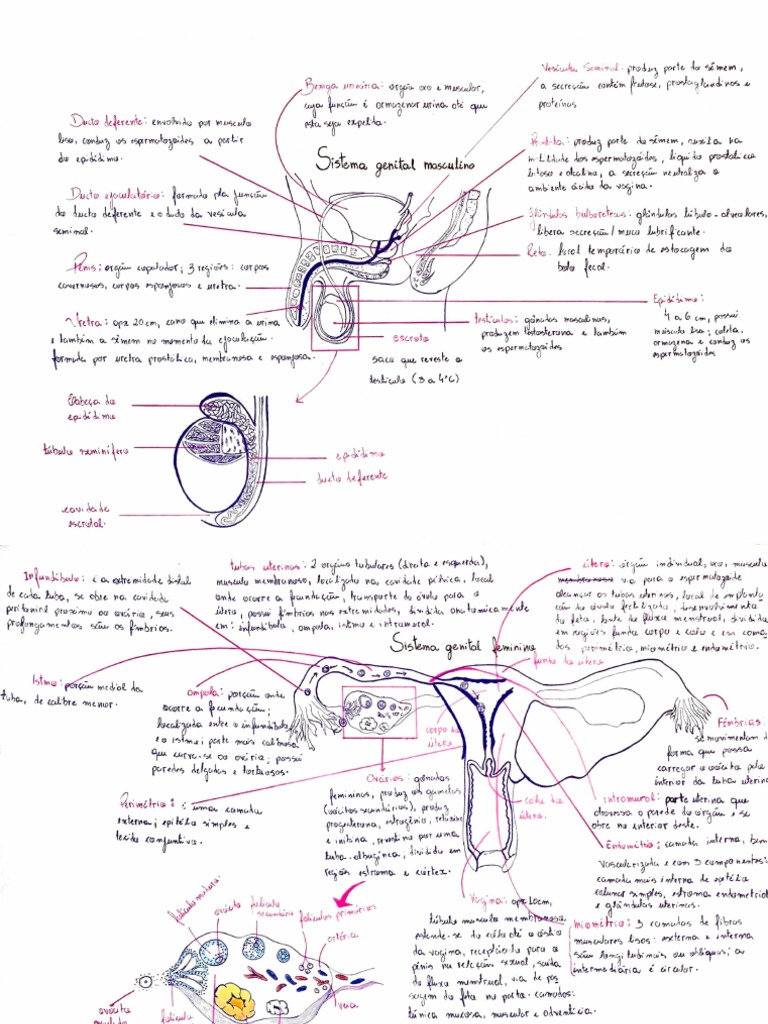 Vesícula Seminal: produz parte do sêmem,
a secreção contém frutose, prostaglandinas e
proteínas
Bexiga urinária: órgão oco e muscular,
cuja função é armazenar urina até que
esta seja expelida.
Ducto deferente: envolvido por músculo
liso, conduz os espermatozóides a partir
do epidídimo.
Próstata: produz parte do sêmem, auxilia na
mobilidade dos espermatozóides, líquido prostático
leitoso e alcalino, a secreção neutraliza o
ambiente ácido da vagina.
Sistema genital masculino
Ducto ejaculatório: formado pela junção
do ducto deferente e o ducto da vesícula
seminal.
Glândulas bulboretrais: glândulas túbulo-alveolares,
libera secreção/muco lubrificante.
Reto: local temporário de estocagem do
bolo fecal.
Pênis: órgão copulador; 3 regiões: corpos
cavernosos, corpos esponjosos e uretra.
Uretra: apx 20cm, cano que elimina a urina
e também a sêmem no momento da ejaculação.
formada por uretra prostática, membranosa e esponjosa.
testículos: gônadas masculinas,
produzem testosterona e também
os espermatozóides
Epidídimo:
4 a 6 cm, possui
músculo liso; coleta,
armazena e conduz os
espermatozóides
escroto
saco que reveste o
testículo (3 a 4°C)
Cabeça do
epidídimo
túbulo seminífero
epidídimo
ducto deferente
cavidade
escrotal
Infundíbulo: é a extremidade distal
de cada tuba, se abre na cavidade
peritonial próximo ao ovário, seus
prolongamentos são as fímbrias.
tubas uterinas: 2 órgãos tubulares (direita e esquerda),
músculo membranoso, localizada na cavidade pélvica, local
onde ocorre a fecundação, transporte do óvulo para o
útero, possui fímbrias nas extremidades, dividida anatomicamente
em: infundíbulo, ampola, istmo e intramural.
útero: órgão individual, oco, músculo
membranoso via para o espermatozóide
alcançar as tubas uterinas, local de implanta
ção do óvulo fertilizado, desenvolvimento
do feto, fonte do fluxo menstrual, dividido
em regiões fundo corpo e colo e em cama
das perimétrio, miométrio e endométrio.
Sistema genital feminino
fundo do útero
Istmo: porção medial da
tuba, de calibre menor.
Ampola: porção onde
ocorre a fecundação;
localizada entre o infundíbulo
e o istmo; parte mais calibrosa
que curva-se ao ovário; possui
paredes delgadas e tortuosas.
corpo do
útero
Fímbrias:
se movimentam de
forma que possa
carregar o ovócito pelo
interior da tuba uterina
Perimétrio: é uma camada
externa; epitélio simples e
tecido conjuntivo.
Ovários: gônadas
femininas, produz os gametas
(ovócitos secundários), produz
progesterona, estrogênio, relaxina
e inibina, revestido por uma
tuba albugínea, dividido em
regiões estroma e córtex.
colo do
útero.
intramural: parte uterina que
atravessa a parede do órgão e se
abre no interior deste.
Endométrio: camada interna, bem
vascularizada e com 3 componentes:
camada mais interna de epitélio
colunar simples, estroma endometrial
e glândulas uterinas.
Vagina: apx 10cm,
túbulo músculo membranosa
estende-se do colo até o óstio
da vagina, receptáculo para o
pênis na relação sexual, saída
do fluxo menstrual, via de pas
sagem do feto no parto. camadas:
túnica mucosa, muscular e adventícia.
Miométrio: 3 camadas de fibras
musculares lisas: externa e interna
são longitudinais ou oblíquas; a
intermediária é circular.
folículo maduro
ovócito
folículo
secundário
folículos primários
artéria
veia
ovócito
folículo